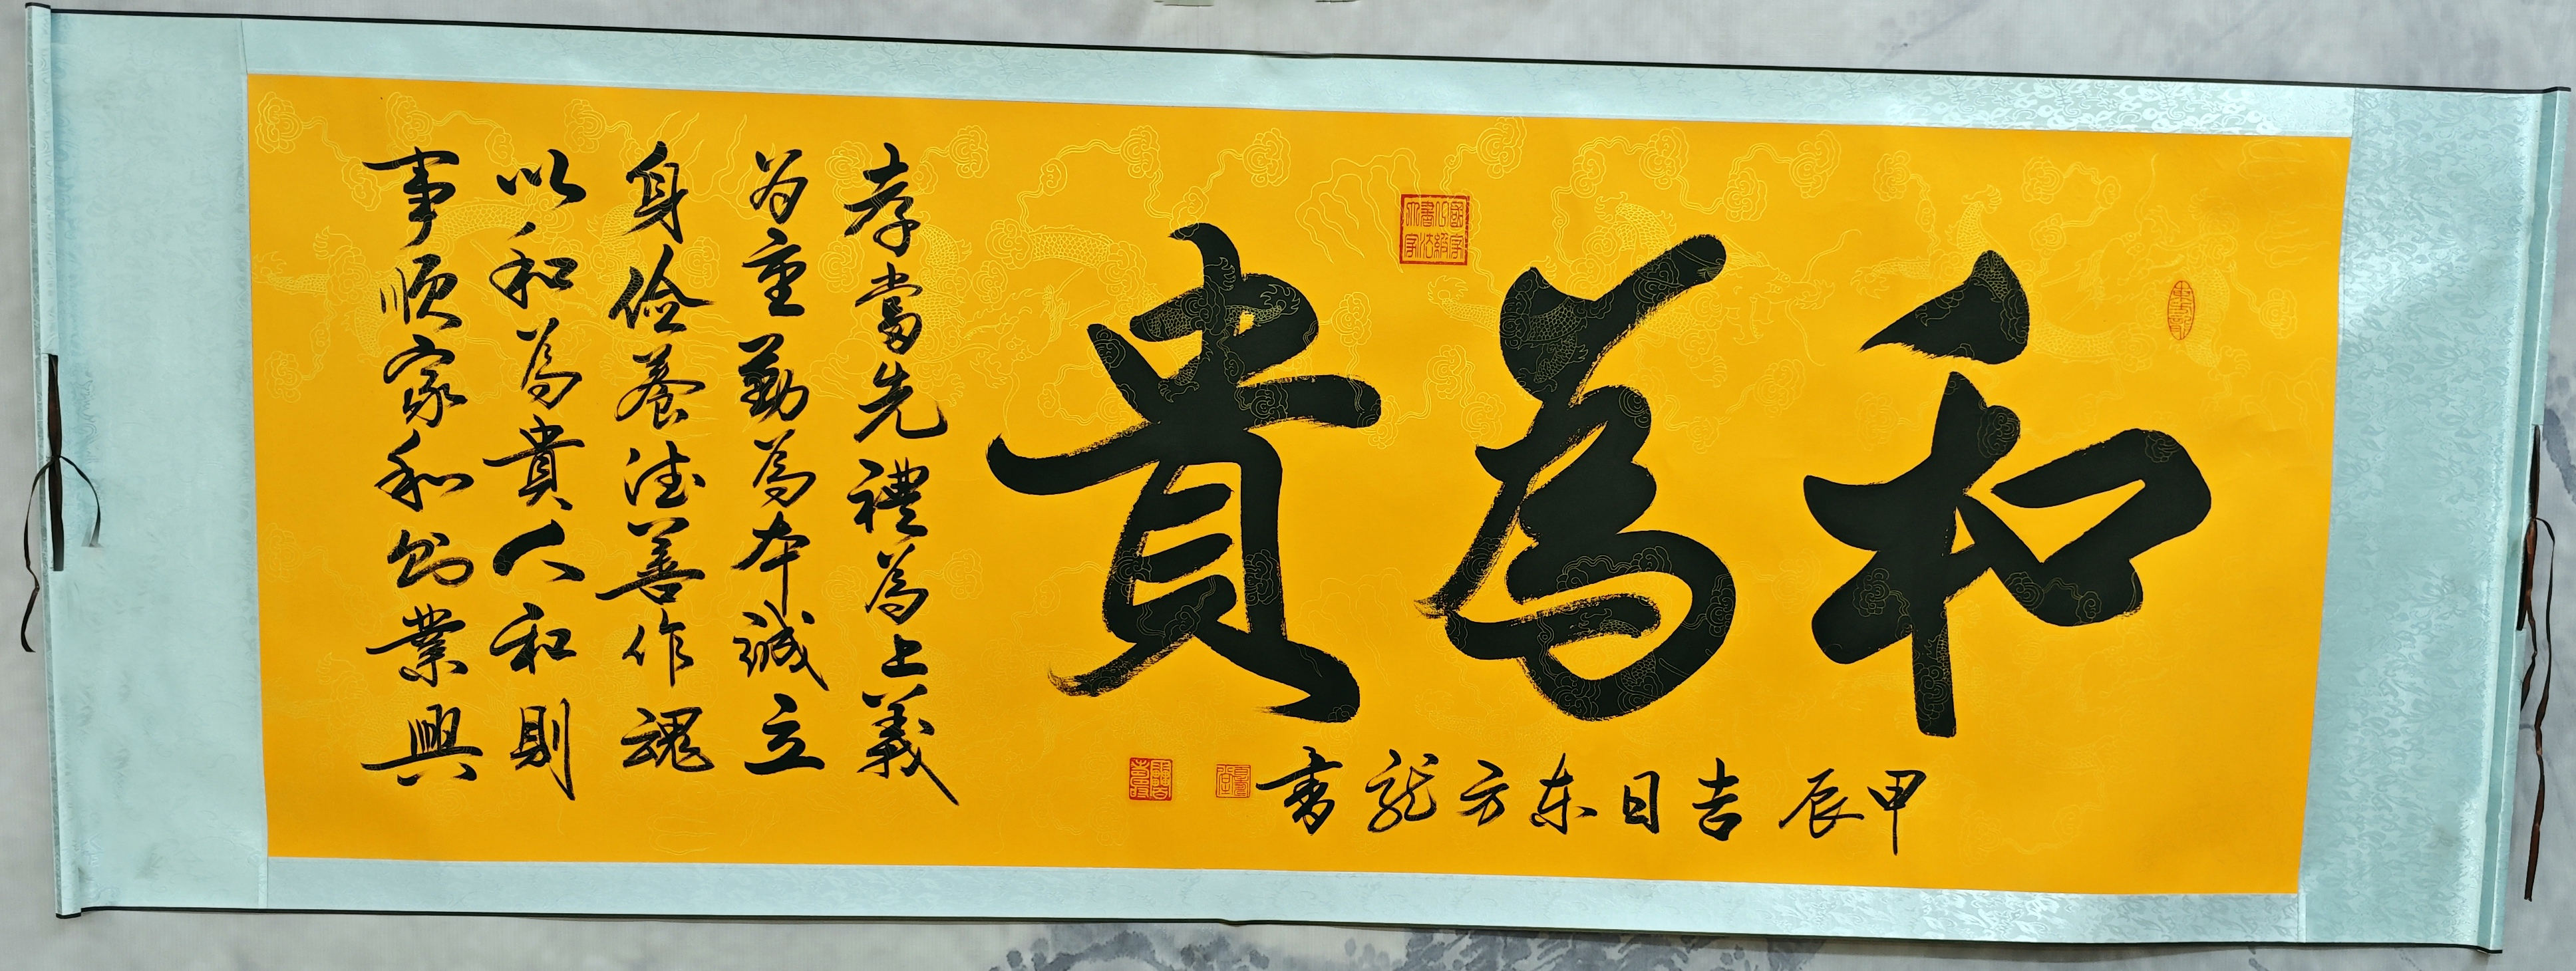 和為貴
甲辰吉日东方龙書
孝當先禮為上義
为重勤為本誠立
身俭養德善作魂
以和為貴人和則
事順家和則業興